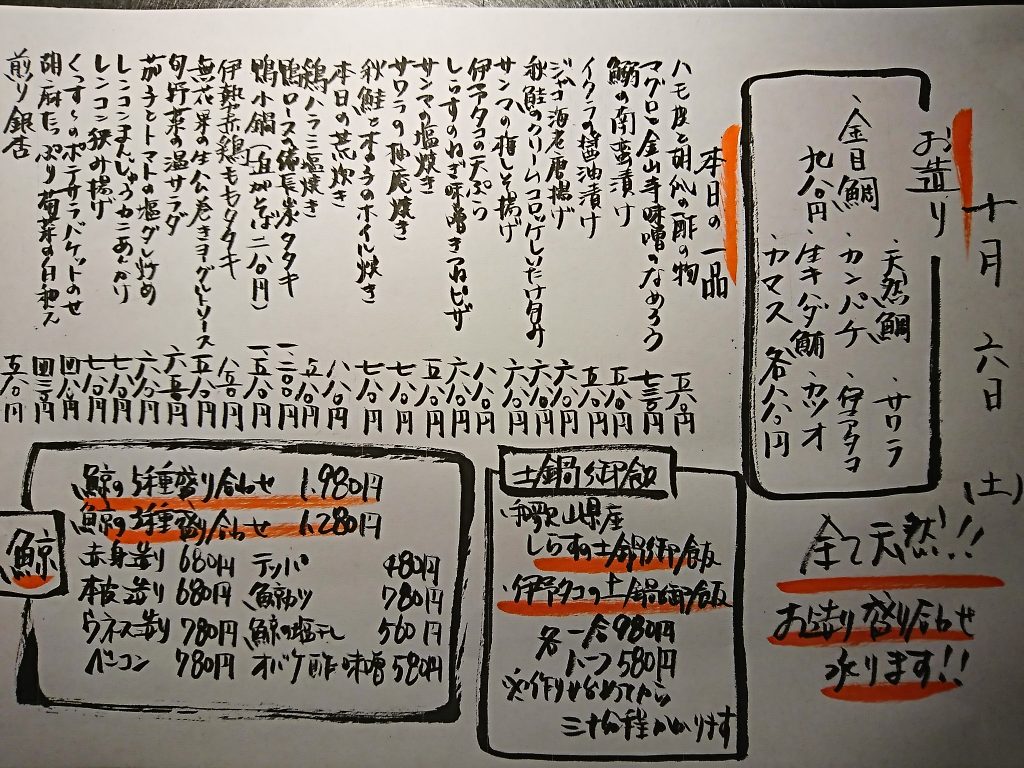 十月 六日 (土)
お造り
天然鯛
サワラ
金目鯛
九八〇円
カンパチ
伊予タコ
生キハダ鮪
カツオ
カマス
各八八〇円
全て天然!!
お造り盛り合わせ
承ります!!
本日の一品
ハモ皮と胡瓜の酢の物 五八〇円
マグロと金山寺味噌のなめろう 七三〇円
鰯の南蛮漬け 五八〇円
イクラの醤油漬け 五八〇円
ジャコ海老唐揚げ 六八〇円
秋鮭のクリームコロッケしいたけ包み 六八〇円
サンマの梅しそ揚げ 六八〇円
伊予タコの天ぷら 八八〇円
しらすのねぎ味噌きつねピザ 六八〇円
サンマの塩焼き 五八〇円
サワラの柚庵焼き 七八〇円
秋鮭と木の子のホイル焼き 七八〇円
本日の荒炊き 八八〇円
鶏ハラミ塩焼き 五八〇円
鴨ロース備長炭タタキ 一、二〇〇円
鴨小鍋 一、五八〇円
伊勢赤鶏ももタタキ 八五〇円
無花果の生ハム巻きヨーグルトソース 五八〇円
旬野菜の温サラダ 六五〇円
茄子とトマトの塩ダレ炒め 六八〇円
レンコンまんじゅうカニあんかけ 七八〇円
レンコン挟み揚げ 七八〇円
くっすーのポテサラバケットのせ 四八〇円
胡麻たっぷり菊菜の白和え 四三〇円
煎り銀杏 五八〇円
土鍋御飯
和歌山県産
しらすの土鍋御飯
伊予タコの土鍋御飯
各 一合 980円
ハーフ 580円
※作り始めてから
三十分程かかります
鯨
鯨の5種盛り合わせ 1.980円
鯨の3種盛り合わせ 1.280円
赤身造り 680円 テッパ 480円
本皮造り 680円 鯨カツ 780円
ウネス造り 780円 鯨の塩干し 560円
ベーコン 780円 オバケ酢味噌 580円